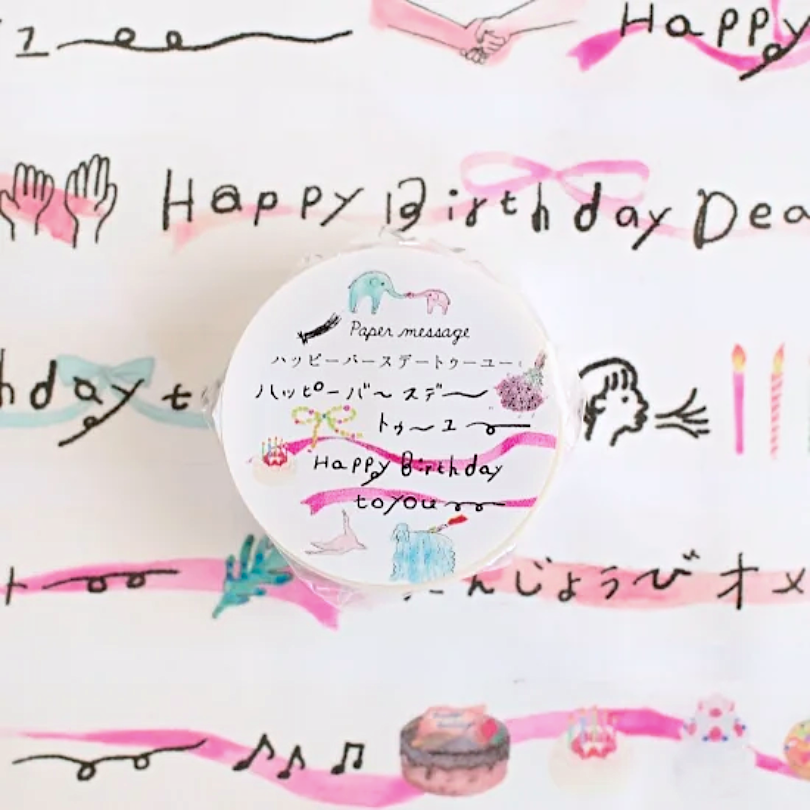 ユ
Happy
Happy Birthday Dea
Paper message
ハッピーバースデートゥーユー
ハッピーバースデー
hday t
トゥーユ
Happy Birthday
to you
ト
んじょうび オメ